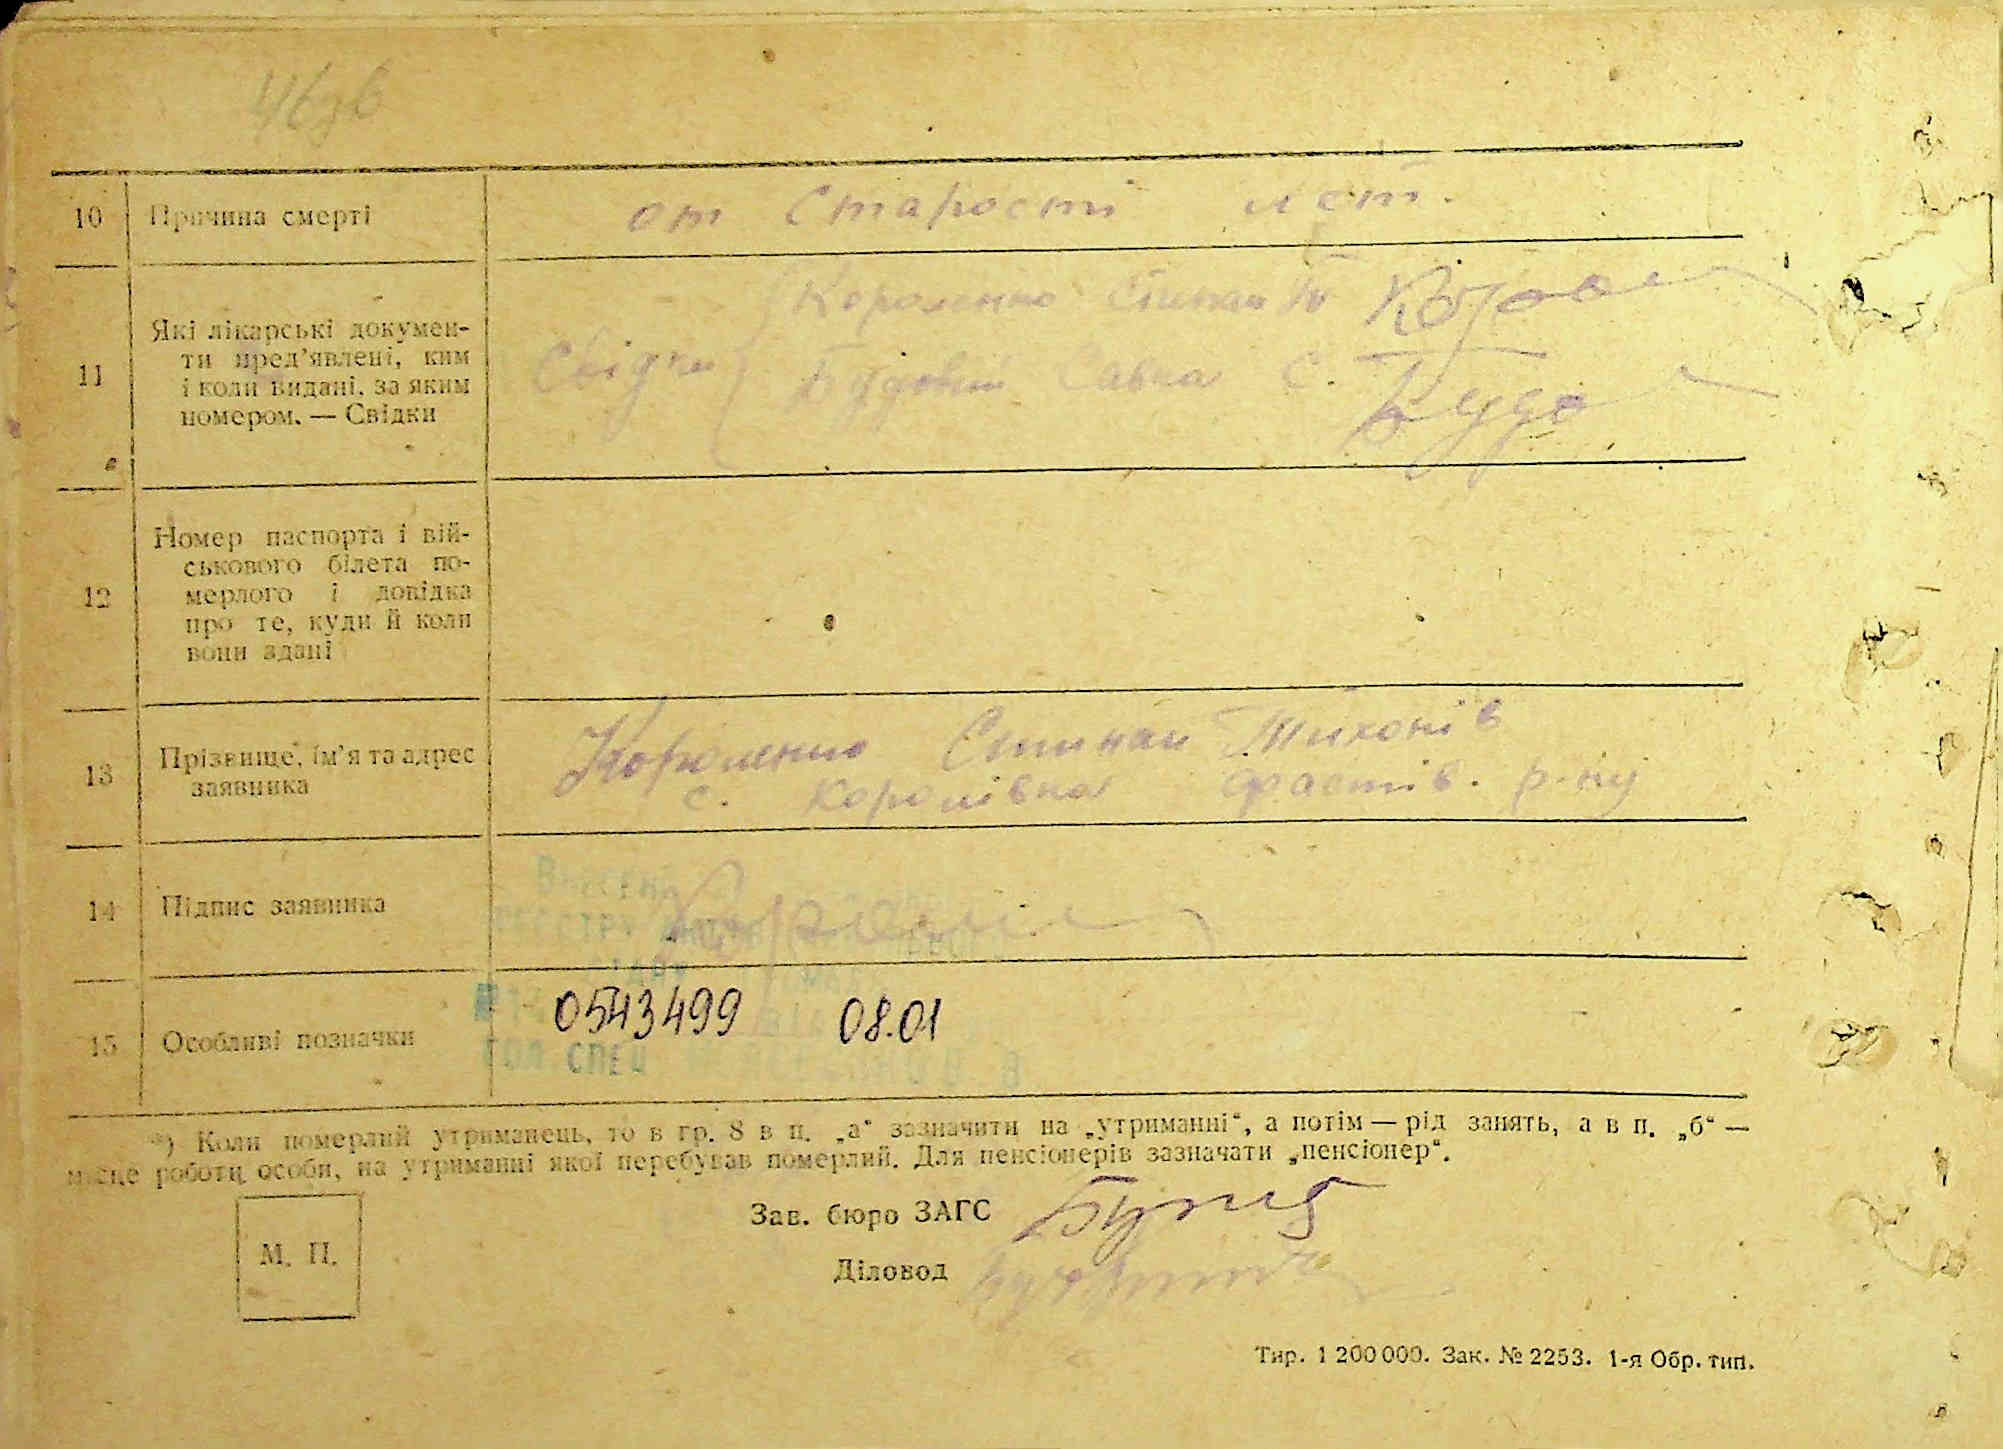 10 Причина смерті
от Старості лет.
11 Які лікарські докумен-
ти пред’явлені, ким
і коли видані, за яким
номером. — Свідки
Свідки
Короленко Степан Т.
Будовий Савка С.
12 Номер паспорта і вій-
ськового білета по-
мерлого і довідка
про те, куди й коли
вони здані
13 Прізвище, ім’я та адрес
заявника
Короленко Степан Тихонів
с. Королівка Фастів. р-ну
14 Підпис заявника
15 Особливі позначки
0543499 08.01
*) Коли померлий утриманець, то в гр. 8 в п. „а“ зазначити на „утриманні“, а потім — рід занять, а в п. „б“ —
місце роботи особи, на утриманні якої перебував померлий. Для пенсіонерів зазначати „пенсіонер“.
М. П.
Зав. бюро ЗАГС
Діловод
Тир. 1 200 000. Зак. № 2253. 1-я Обр. тип.